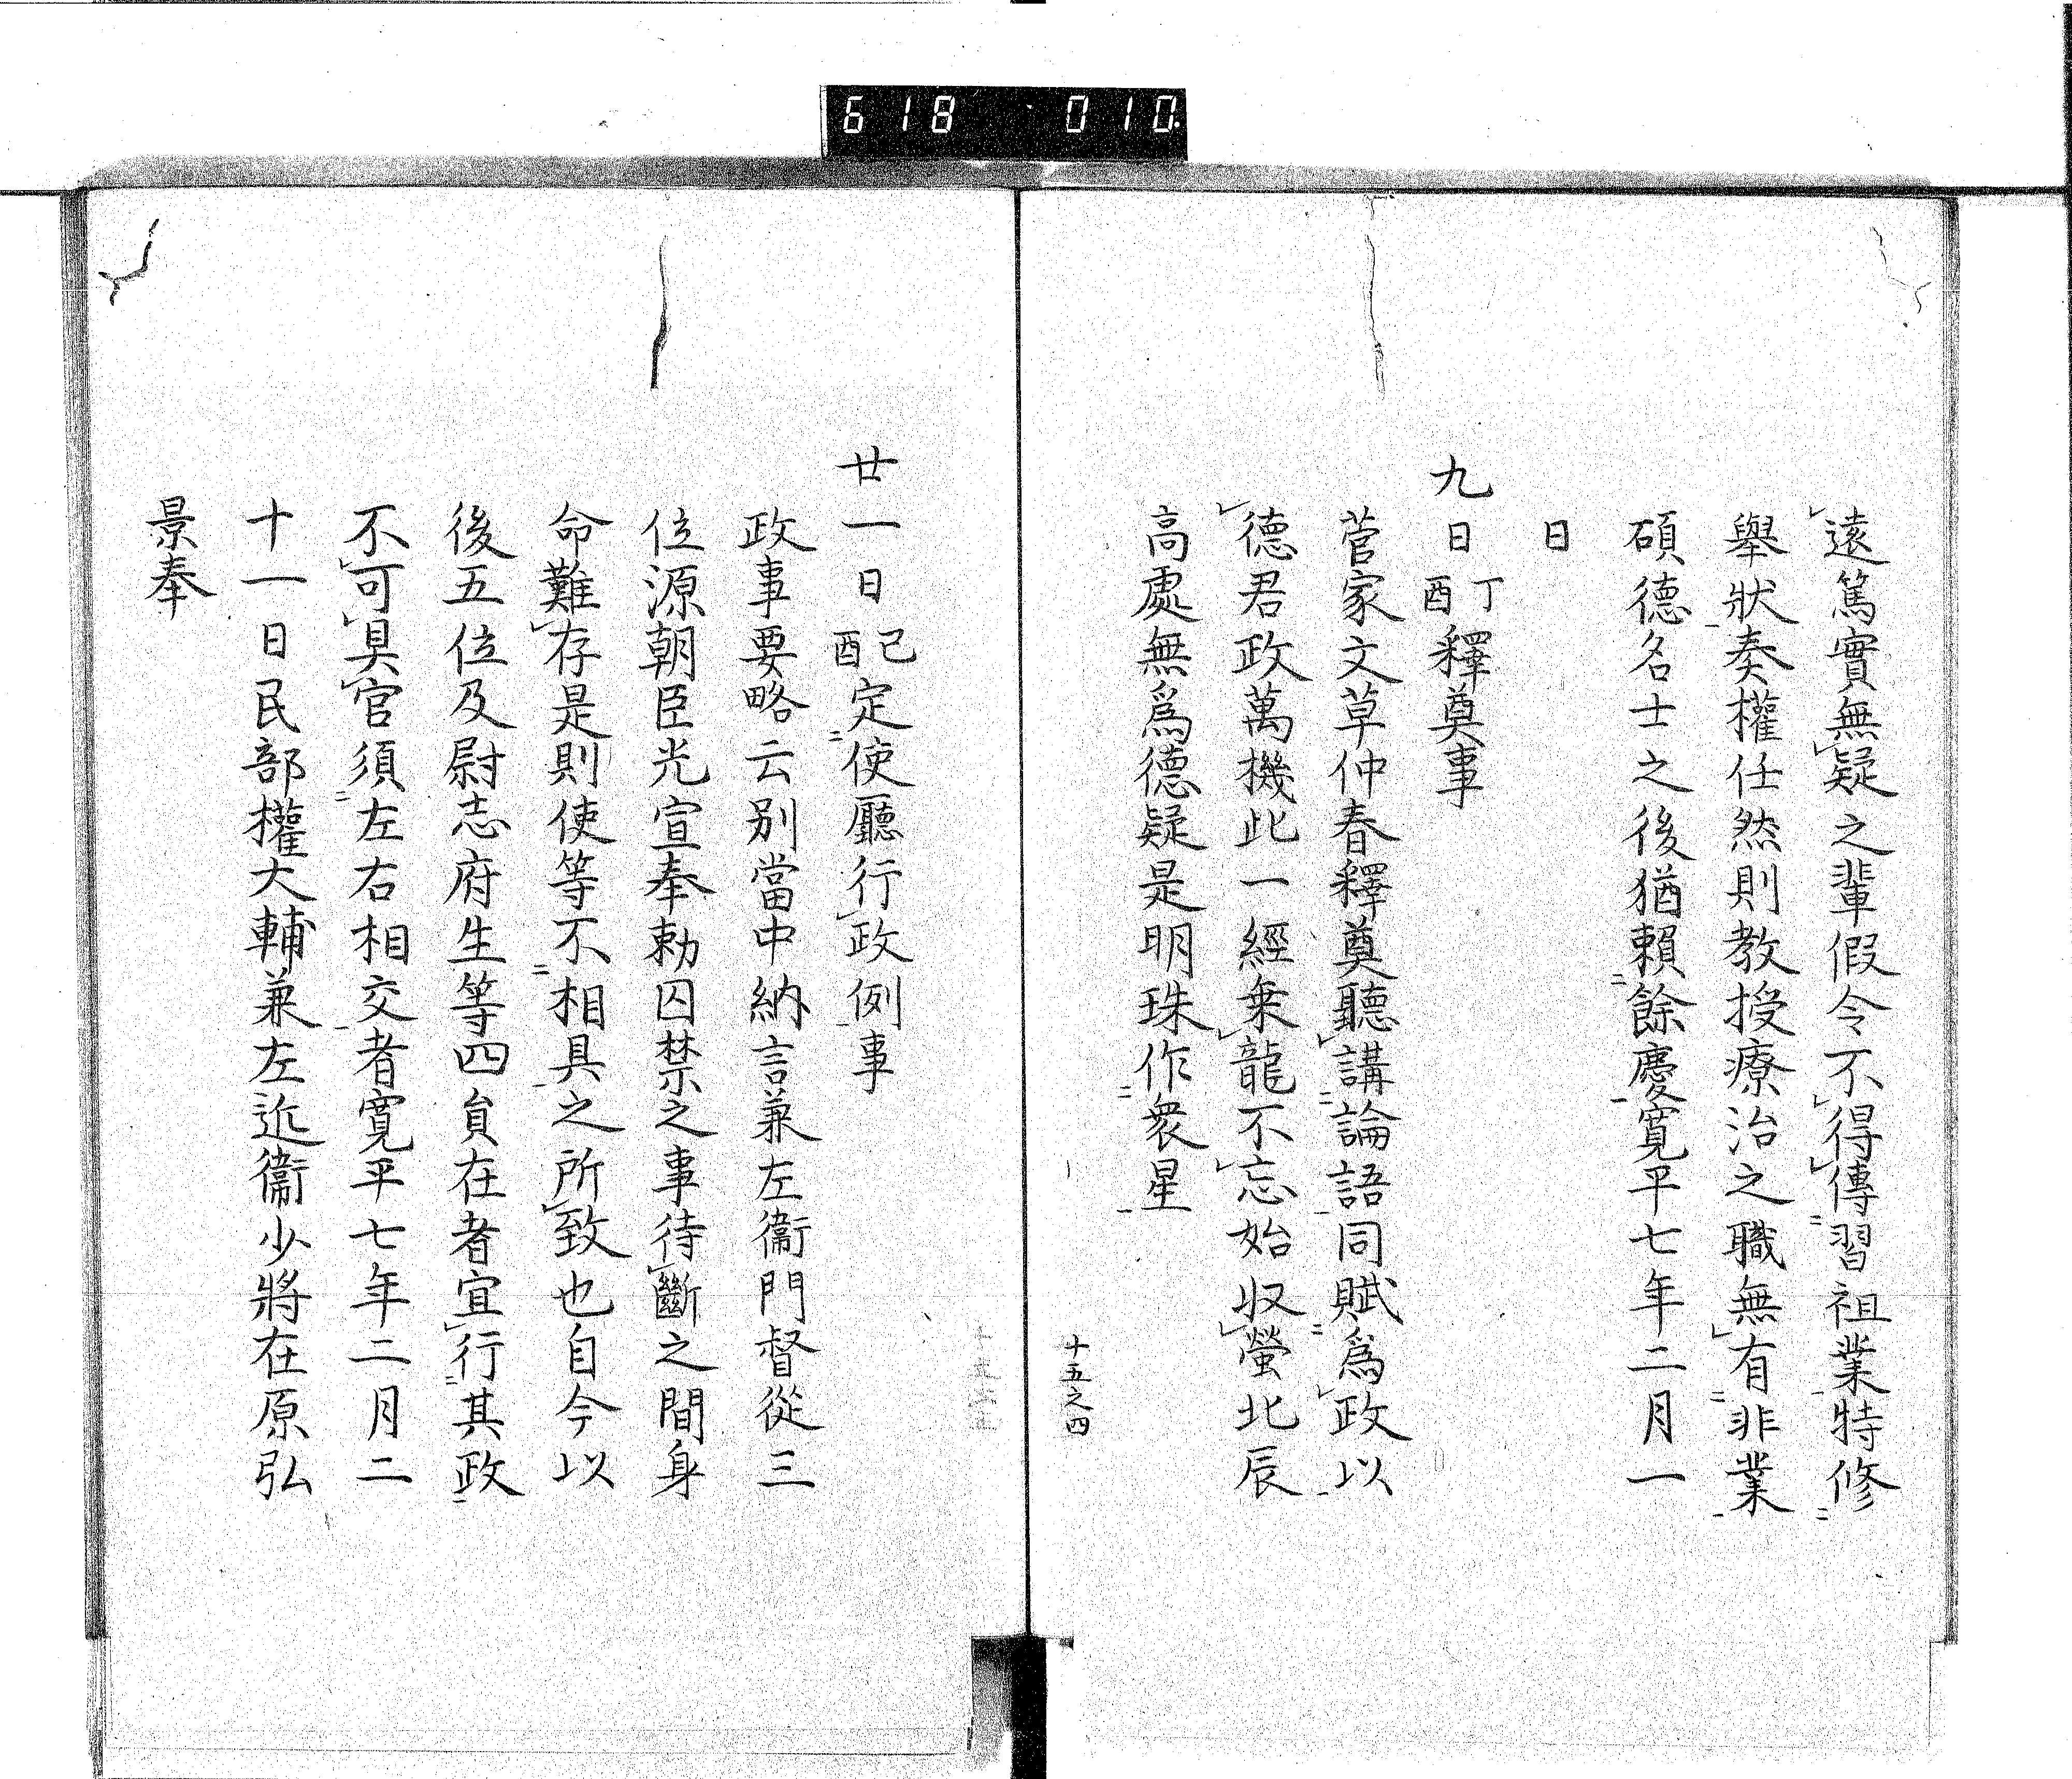 618 010.
遠篤實無疑之輩假令不得傳習祖業特修
舉狀奏權任然則教授療治之職無有非業
碩德名士之後猶賴餘慶寬平七年二月一
日
九日丁酉釋奠事
菅家文草仲春釋奠聽講論語同賦爲政以
德君政萬機此一經乗龍不忘始収螢北辰
高處無爲德疑是明珠作衆星
十五之四
廿一日己酉定使廳行政例事
政事要略云别當中納言兼左衞門督從三
位源朝臣光宣奉勅囚禁之事待斷之間身
命難存是則使等不相具之所致也自今以
後五位及尉志府生等四貟在者宜行其政
不可具官須左右相交者寬平七年二月二
十一日民部權大輔兼左近衞少將在原弘
景奉